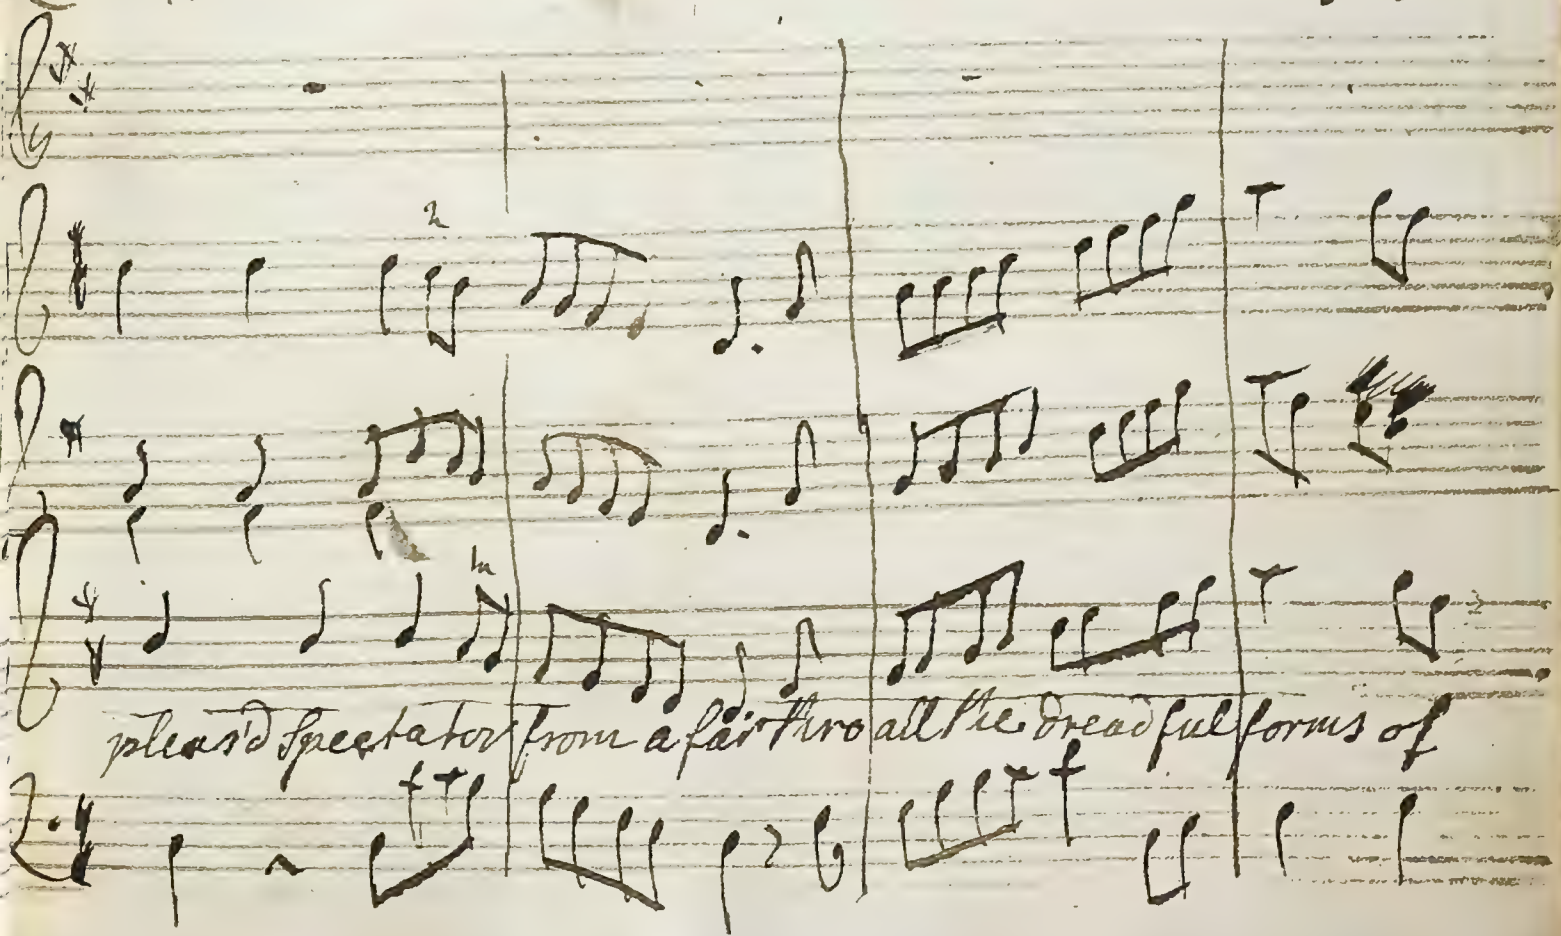 pleas'd Spectator from a far thro all the dreadful forms of